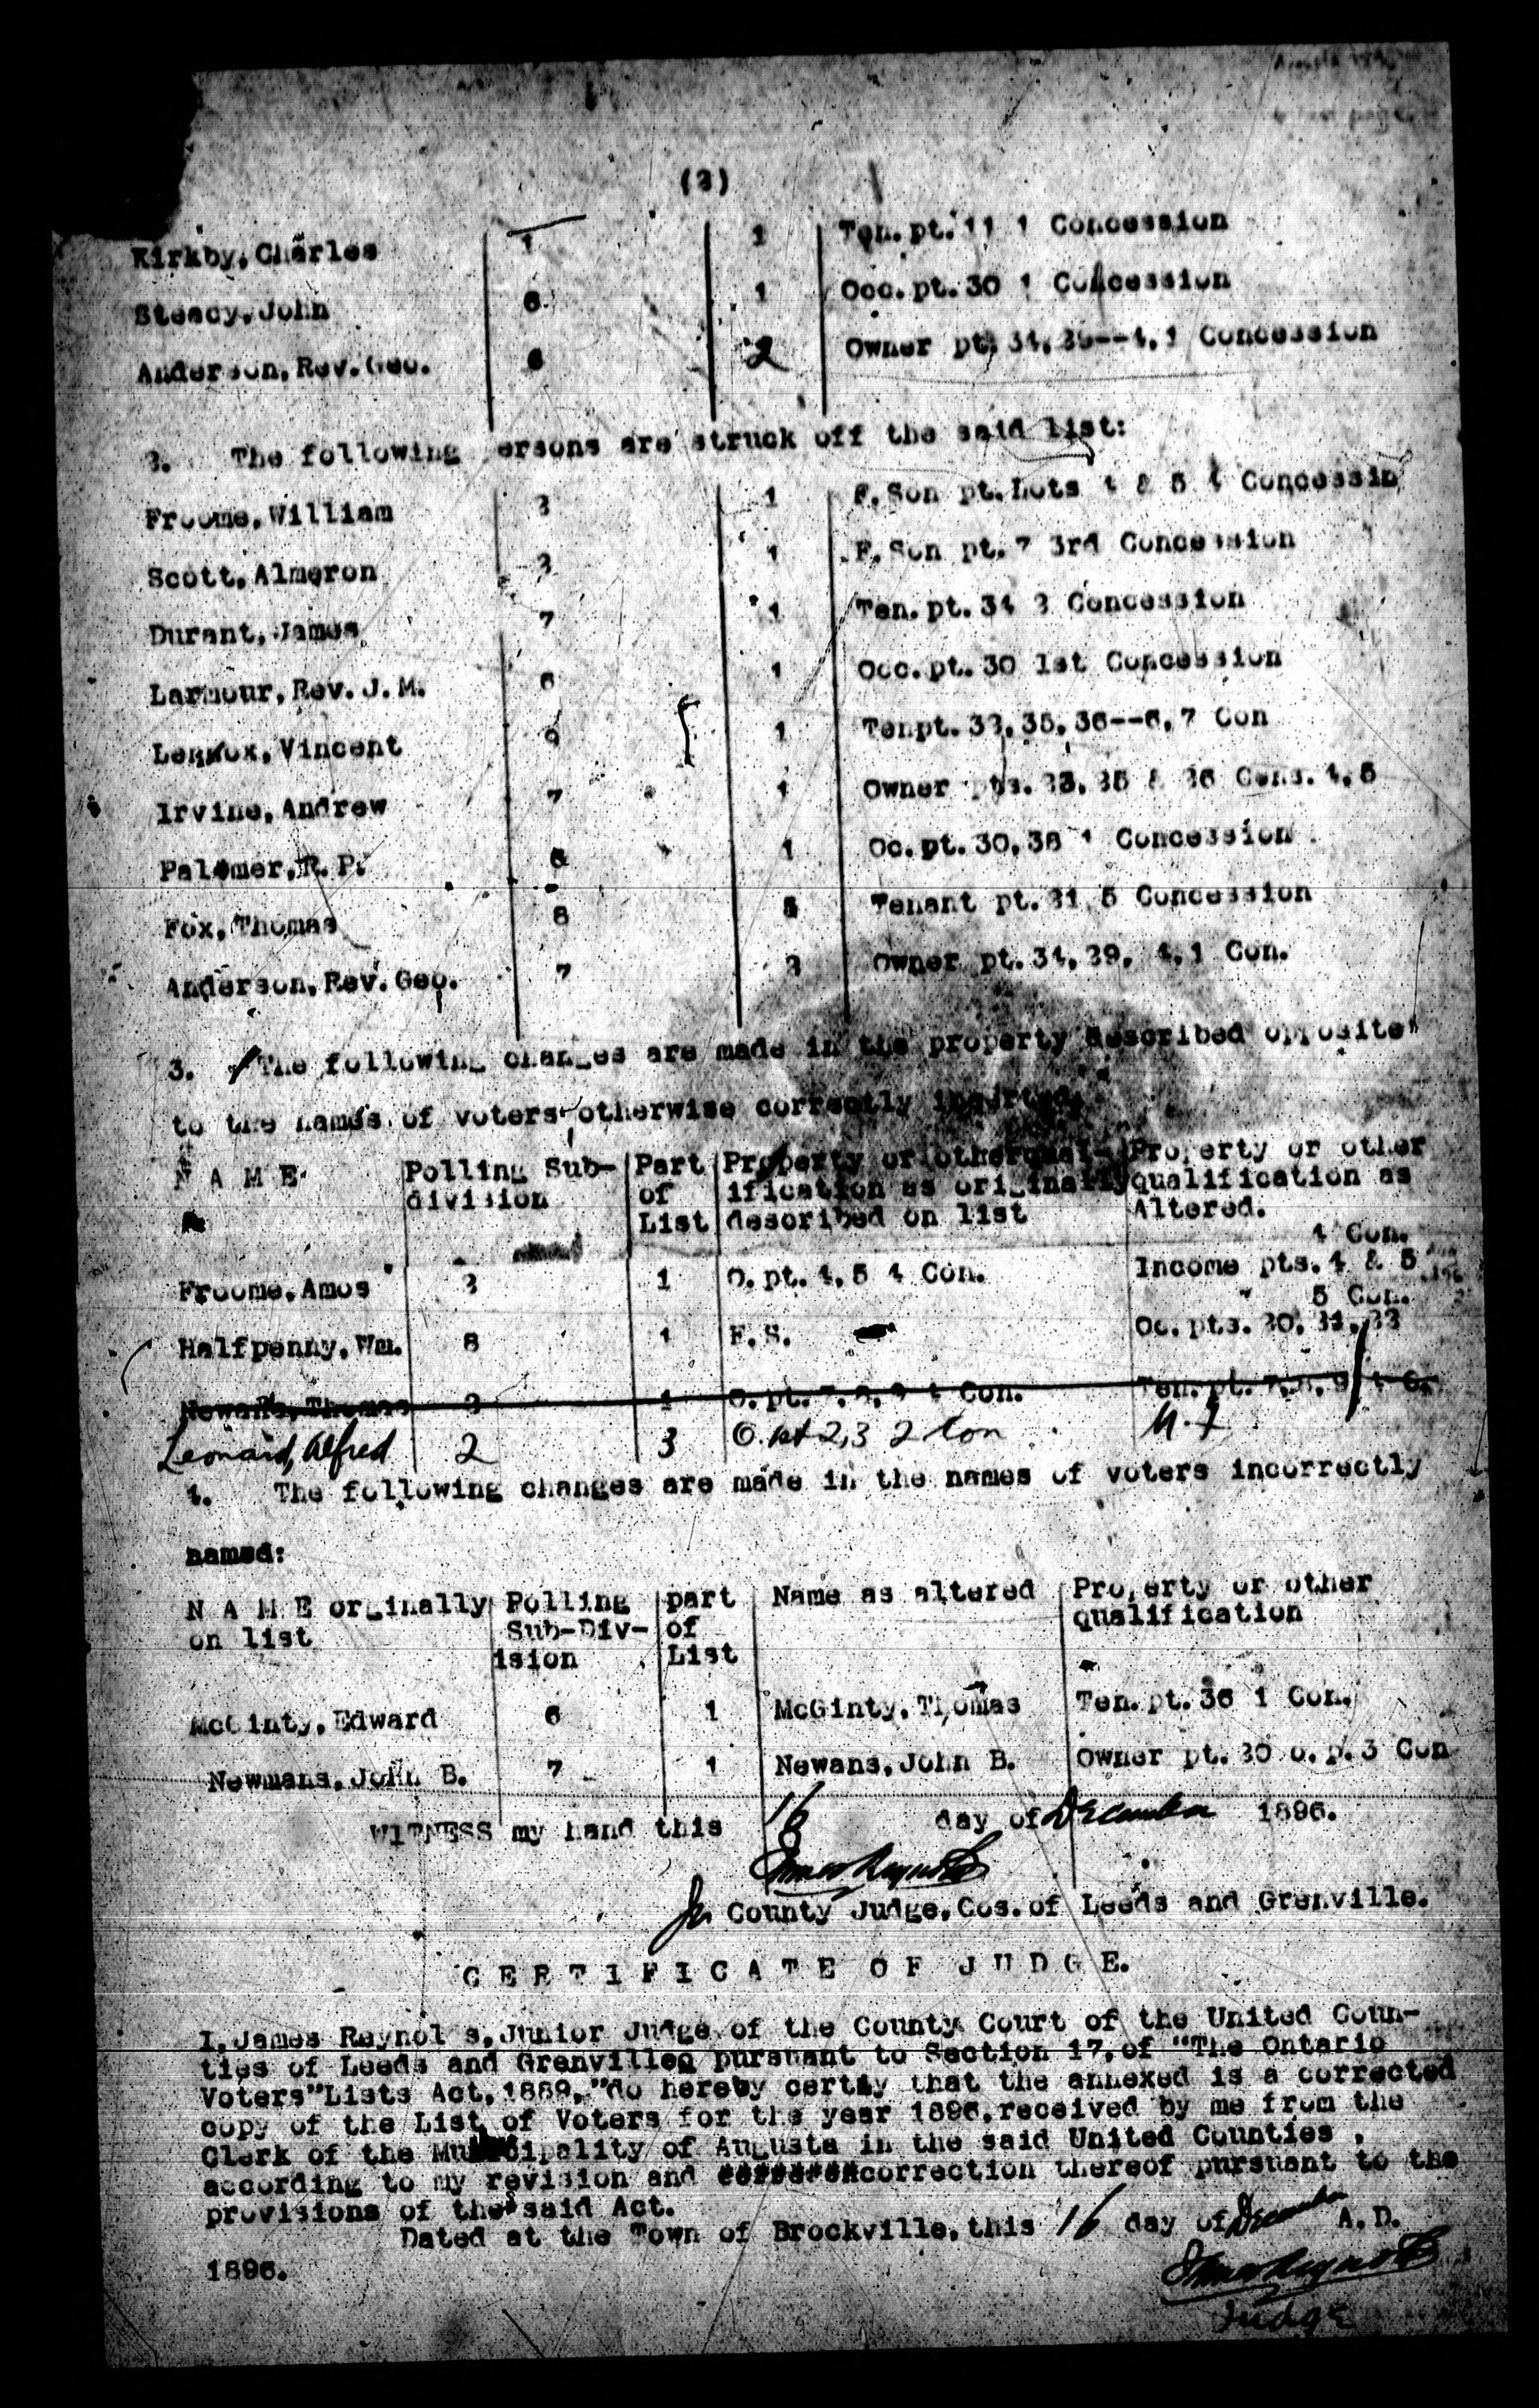 (2)
Kirkby, Charles 1 1 Ten. pt. 11 1 Concession
Steacy, John 6 1 Occ. pt. 30 1 Concession
Anderson, Rev. Geo. 6 2 Owner pt. 34, 29--4, 1 Concession
2. The following ersons are struck off the said list:
Froome, William 2 1 F. Son pt. Lots 4 & 5 4 Concessin
Scott, Almeron 2 1 F. Son pt. 7 3rd Concession
Durant, James 7 1 Ten. pt. 34 2 Concession
Larmour, Rev. J. M. 6 1 Occ. pt. 30 1st Concession
Lennox, Vincent 9 1 Tenpt. 33, 35, 36--6, 7 Con
Irvine, Andrew 7 1 Owner pts. 25 & 26 Cons. 4, 5
Palmer, R. P. 6 1 Oc. pt. 30, 38 1 Concession
Fox, Thomas 8 Tenant pt. 21 5 Concession
Anderson, Rev. Geo. 7 2 Owner pt. 34, 29, 4, 1 Con.
3. The following changes are made in the property described opposite
to the names of voters otherwise correctly inserted.
N A M E Polling Sub- Part Property or other qual- Property or other
division of ification as originally qualification as
List described on list Altered.
4 Con.
Froome, Amos 2 1 O. pt. 4, 5 4 Con. Income pts. 4 & 5
5 Con.
Halfpenny, Wm. 8 1 F. S. Oc. pts. 20, 21, 22
Newans, Thomas 2 1 O. pt. 7, 8, 9 4 Con. Ten. pt. 7, 8, 9 4 C.
Leonard, Alfred 2 3 O. pt 2,3 2 Con M. F
4. The following changes are made in the names of voters incorrectly
named:
N A M E orginally Polling part Name as altered Property or other
on list Sub-Div- of qualification
ision List
McGinty, Edward 6 1 McGinty, Thomas Ten. pt. 36 1 Con.
Newmans, John B. 7 1 Newans, John B. Owner pt. 30 3 Con
WITNESS my hand this 16 day of December 1896.
James Reynolds
Jr County Judge, Cos. of Leeds and Grenville.
C E R T I F I C A T E O F J U D G E.
I, James Reynol s, Junior Judge of the County Court of the United Coun-
ties of Leeds and Grenville, pursuant to Section 17, of "The Ontario
Voters" Lists Act, 1889, "do hereby certiy that the annexed is a corrected
copy of the List of Voters for the year 1896, received by me from the
Clerk of the Municipality of Augusta in the said United Counties ,
according to my revision and correction thereof pursuant to the
provisions of the said Act.
Dated at the Town of Brockville, this 16 day of December A. D.
1896.
James Reynolds
Judge